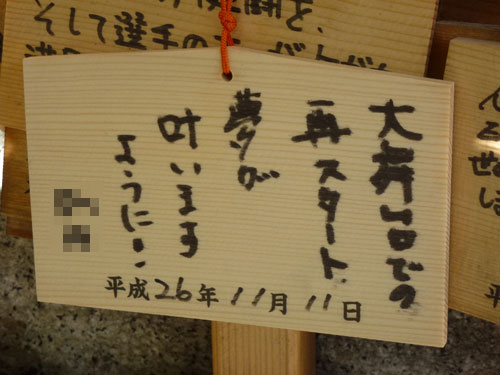 大舞台での
再スタート
夢が
叶います
ように!
平成26年11月11日
そして選手の